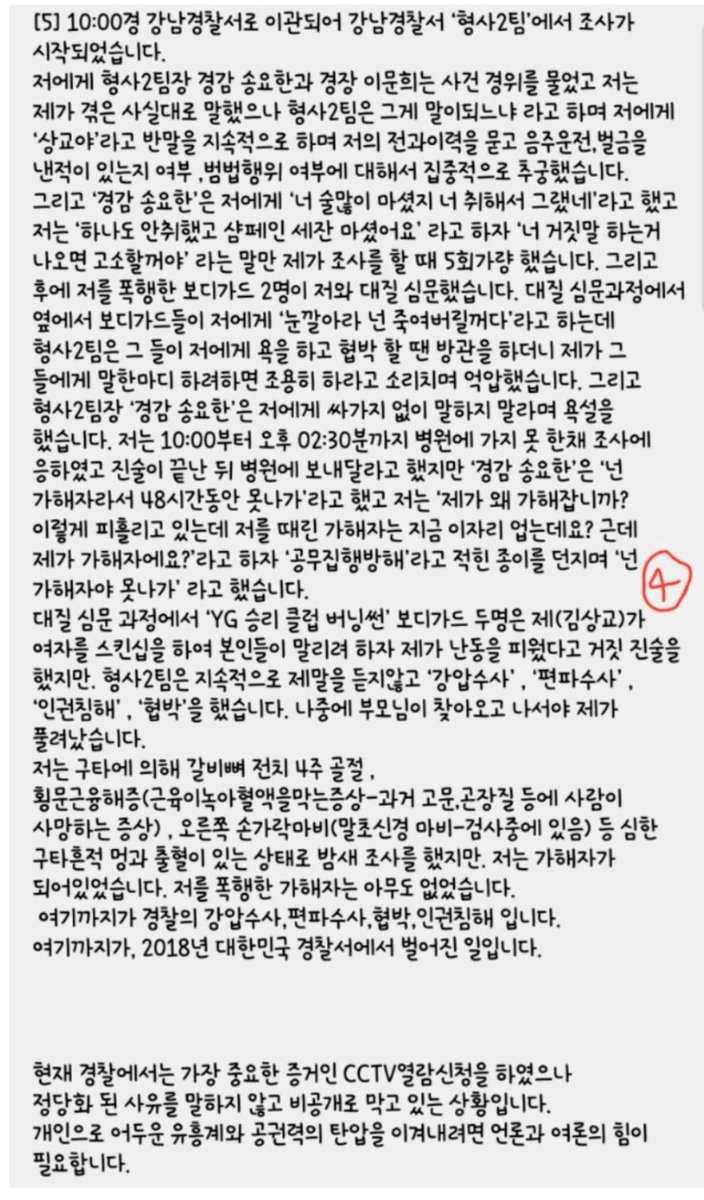 [5] 10:00경 강남경찰서로 이관되어 강남경찰서 '형사2팀'에서 조사가
시작되었습니다.
저에게 형사2팀장 경감 송요한과 경장 이문희는 사건 경위를 물었고 저는
제가 겪은 사실대로 말했으나 형사2팀은 그게 말이되느냐 라고 하며 저에게
'상교야'라고 반말을 지속적으로 하며 저의 전과이력을 묻고 음주운전,벌금을
낸적이 있는지 여부 ,범법행위 여부에 대해서 집중적으로 추궁했습니다.
그리고 '경감 송요한'은 저에게 '너 술많이 마셨지 너 취해서 그랬네'라고 했고
저는 '하나도 안취했고 샴페인 세잔 마셨어요' 라고 하자 '너 거짓말 하는거
나오면 고소할꺼야' 라는 말만 제가 조사를 할 때 5회가량 했습니다. 그리고
후에 저를 폭행한 보디가드 2명이 저와 대질 심문했습니다. 대질 심문과정에서
옆에서 보디가드들이 저에게 '눈깔아라 넌 죽여버릴꺼다'라고 하는데
형사2팀은 그 들이 저에게 욕을 하고 협박 할 땐 방관을 하더니 제가 그
들에게 말한마디 하려하면 조용히 하라고 소리치며 억압했습니다. 그리고
형사2팀장 '경감 송요한'은 저에게 싸가지 없이 말하지 말라며 욕설을
했습니다. 저는 10:00부터 오후 02:30분까지 병원에 가지 못 한채 조사에
응하였고 진술이 끝난 뒤 병원에 보내달라고 했지만 '경감 송요한'은 '넌
가해자라서 48시간동안 못나가'라고 했고 저는 '제가 왜 가해잡니까?
이렇게 피흘리고 있는데 저를 때린 가해자는 지금 이자리 업는데요? 근데
제가 가해자에요?'라고 하자 '공무집행방해'라고 적힌 종이를 던지며 '넌
가해자야 못나가' 라고 했습니다.
4
대질 심문 과정에서 'YG 승리 클럽 버닝썬' 보디가드 두명은 제(김상교)가
여자를 스킨십을 하여 본인들이 말리려 하자 제가 난동을 피웠다고 거짓 진술을
했지만. 형사2팀은 지속적으로 제말을 듣지않고 '강압수사' , '편파수사' ,
'인권침해' , '협박'을 했습니다. 나중에 부모님이 찾아오고 나서야 제가
풀려났습니다.
저는 구타에 의해 갈비뼈 전치 4주 골절 ,
횡문근융해증(근육이녹아혈액을막는증상-과거 고문,곤장질 등에 사람이
사망하는 증상) , 오른쪽 손가락마비(말초신경 마비-검사중에 있음) 등 심한
구타흔적 멍과 출혈이 있는 상태로 밤새 조사를 했지만. 저는 가해자가
되어있었습니다. 저를 폭행한 가해자는 아무도 없었습니다.
여기까지가 경찰의 강압수사,편파수사,협박,인권침해 입니다.
여기까지가, 2018년 대한민국 경찰서에서 벌어진 일입니다.
현재 경찰에서는 가장 중요한 증거인 CCTV열람신청을 하였으나
정당화 된 사유를 말하지 않고 비공개로 막고 있는 상황입니다.
개인으로 어두운 유흥계와 공권력의 탄압을 이겨내려면 언론과 여론의 힘이
필요합니다.